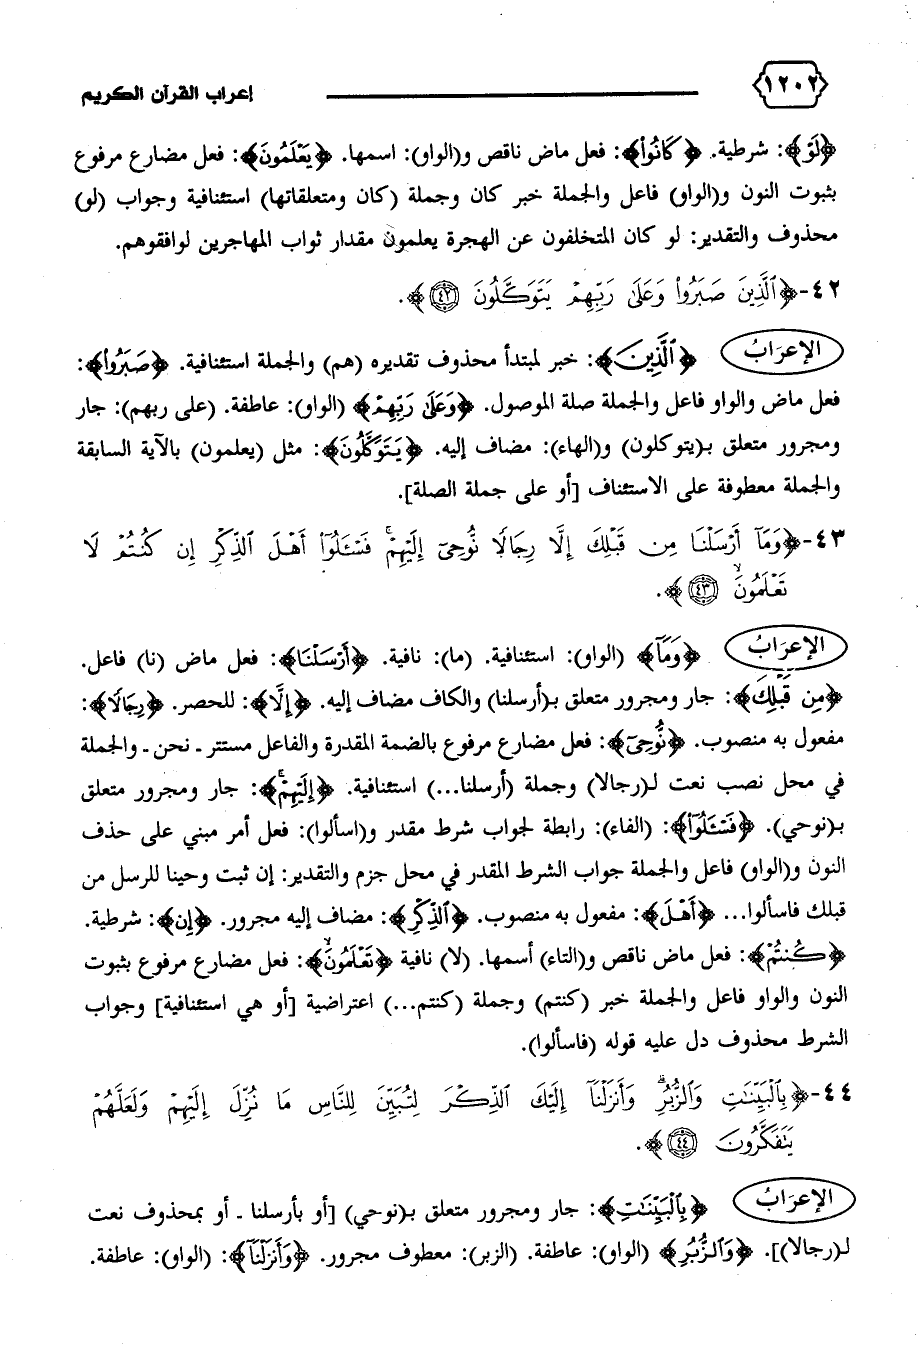 ١٢٠٢ إعراب القرآن الكريم
﴿لَوْ﴾: شرطية. ﴿كَانُوا۟﴾: فعل ماض ناقص و(الواو): اسمها. ﴿يَعْلَمُونَ﴾: فعل مضارع مرفوع
بثبوت النون و(الواو) فاعل والجملة خبر كان وجملة (كان ومتعلقاتها) استئنافية وجواب (لو)
محذوف والتقدير: لو كان المتخلفون عن الهجرة يعلمون مقدار ثواب المهاجرين لوافقوهم.
٤٢-﴿ٱلَّذِينَ صَبَرُوا۟ وَعَلَىٰ رَبِّهِمْ يَتَوَكَّلُونَ ٤٢﴾.
الإعرَابُ ﴿ٱلَّذِينَ﴾: خبر لمبتدأ محذوف تقديره (هم) والجملة استئنافية. ﴿صَبَرُوا۟﴾:
فعل ماض والواو فاعل والجملة صلة الموصول. ﴿وَعَلَىٰ رَبِّهِمْ﴾ (الواو): عاطفة. (على ربهم): جار
ومجرور متعلق بـ(يتوكلون) و(الهاء): مضاف إليه. ﴿يَتَوَكَّلُونَ﴾: مثل (يعلمون) بالآية السابقة
والجملة معطوفة على الاستئناف [أو على جملة الصلة].
٤٣-﴿وَمَآ أَرْسَلْنَا مِن قَبْلِكَ إِلَّا رِجَالًا نُّوحِىٓ إِلَيْهِمْ ۚ فَسْـَٔلُوٓا۟ أَهْلَ ٱلذِّكْرِ إِن كُنتُمْ لَا
تَعْلَمُونَ ۙ ٤٣﴾.
الإعرَابُ ﴿وَمَآ﴾ (الواو): استئنافية. (ما): نافية. ﴿أَرْسَلْنَا﴾: فعل ماض (نا) فاعل.
﴿مِن قَبْلِكَ﴾: جار ومجرور متعلق بـ(أرسلنا) والكاف مضاف إليه. ﴿إِلَّا﴾: للحصر. ﴿رِجَالًا﴾:
مفعول به منصوب. ﴿نُّوحِىٓ﴾: فعل مضارع مرفوع بالضمة المقدرة والفاعل مستتر ـ نحن ـ والجملة
في محل نصب نعت لـ(رجالا) وجملة (أرسلنا...) استئنافية. ﴿إِلَيْهِمْ ۚ﴾: جار ومجرور متعلق
بـ(نوحي). ﴿فَسْـَٔلُوٓا۟﴾: (الفاء): رابطة لجواب شرط مقدر و(اسألوا): فعل أمر مبني على حذف
النون و(الواو) فاعل والجملة جواب الشرط المقدر في محل جزم والتقدير: إن ثبت وحينا للرسل من
قبلك فاسألوا... ﴿أَهْلَ﴾: مفعول به منصوب. ﴿ٱلذِّكْرِ﴾: مضاف إليه مجرور. ﴿إِن﴾: شرطية.
﴿كُنتُمْ﴾: فعل ماض ناقص و(التاء) أسمها. (لا) نافية ﴿تَعْلَمُونَ ۙ﴾: فعل مضارع مرفوع بثبوت
النون والواو فاعل والجملة خبر (كنتم) وجملة (كنتم...) اعتراضية [أو هي استئنافية] وجواب
الشرط محذوف دل عليه قوله (فاسألوا).
٤٤-﴿بِٱلْبَيِّنَٰتِ وَٱلزُّبُرِ ۗ وَأَنزَلْنَآ إِلَيْكَ ٱلذِّكْرَ لِتُبَيِّنَ لِلنَّاسِ مَا نُزِّلَ إِلَيْهِمْ وَلَعَلَّهُمْ
يَتَفَكَّرُونَ ٤٤﴾.
الإعرَابُ ﴿بِٱلْبَيِّنَٰتِ﴾: جار ومجرور متعلق بـ(نوحي) [أو بأرسلنا ـ أو بمحذوف نعت
لـ(رجالا)]. ﴿وَٱلزُّبُرِ﴾ (الواو): عاطفة. (الزبر): معطوف مجرور. ﴿وَأَنزَلْنَآ﴾: (الواو): عاطفة.